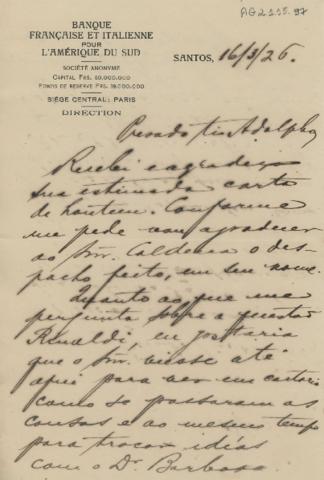 AG2155.97
BANQUE
FRANÇAISE ET ITALIENNE
POUR
L'AMÉRIQUE DU SUD
SOCIÉTÉ ANONYME
CAPITAL FRS. 50.000.000
FONDS DE RESERVE FRS. 39.000.000
SIÈGE CENTRAL: PARIS
DIRECTION
SANTOS, 16/3/26.
Presado tio Adolpho
Recebi e agradeço
sua estimada carta
de hontem. Conforme
me pede vou agradecer
ao Snr. Caldeira o des-
pacho feito, em seu nome.
Quanto ao que me
pergunta sobre a questão
Rinaldi, eu gostaria
que o Snr. viesse até
aqui para ver em cartorio
como se passaram as
cousas e ao mesmo tempo
para trocar idéas
com o Dr. Barbosa.